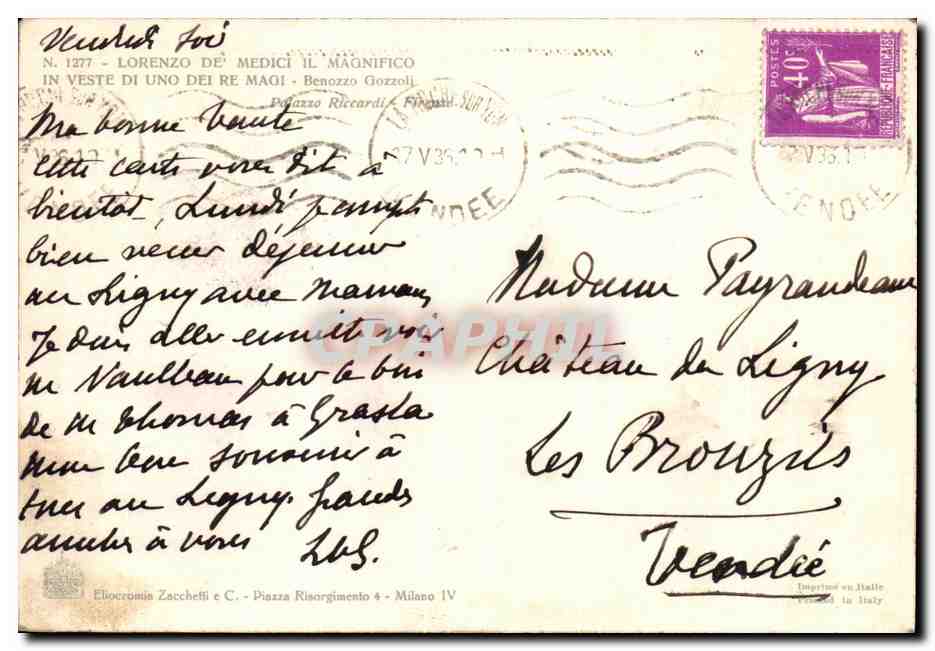 Vendredi soir
N. 1277 - LORENZO DE' MEDICI IL MAGNIFICO
IN VESTE DI UNO DEI RE MAGI - Benozzo Gozzoli
Palazzo Riccardi - Firenze
POSTES
40c
REPUBLIQUE FRANÇAISE
LA ROCHE-SUR-YON
VENDEE
Ma bonne
Cette carte vous dit à
bientôt, Lundi je compte
bien venir déjeuner
au Ligny avec Maman,
Je dois aller ensuite voir
M pour le bois
de M Thomas à Grasla
Mon bon souvenir à
tous au Ligny. Grandes
amitiés à vous
Madame Payraudeau
Château du Ligny
Les Brouzils
Vendée
CPAPHIL
Eliocromia Zacchetti e C. - Piazza Risorgimento 4 - Milano IV
Imprimé en Italie
Printed in Italy